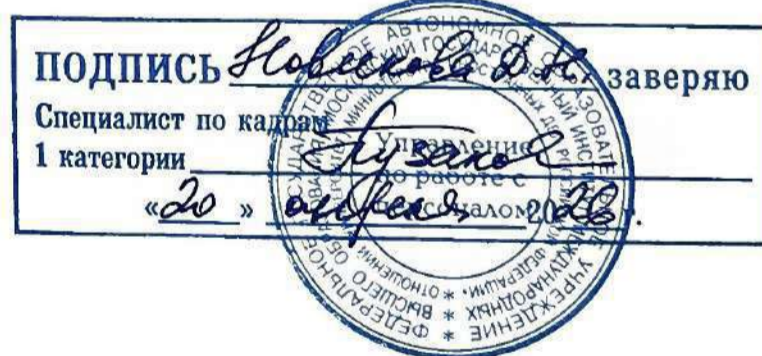 ПОДПИСЬ Новикова Д.Н. заверяю
Специалист по кадрам
1 категории
«20» апреля 2026 г.
Управление
по работе с
персоналом
ФЕДЕРАЛЬНОЕ ГОСУДАРСТВЕННОЕ АВТОНОМНОЕ ОБРАЗОВАТЕЛЬНОЕ УЧРЕЖДЕНИЕ * ВЫСШЕГО ОБРАЗОВАНИЯ
МОСКОВСКИЙ ГОСУДАРСТВЕННЫЙ ИНСТИТУТ МЕЖДУНАРОДНЫХ * ОТНОШЕНИЙ